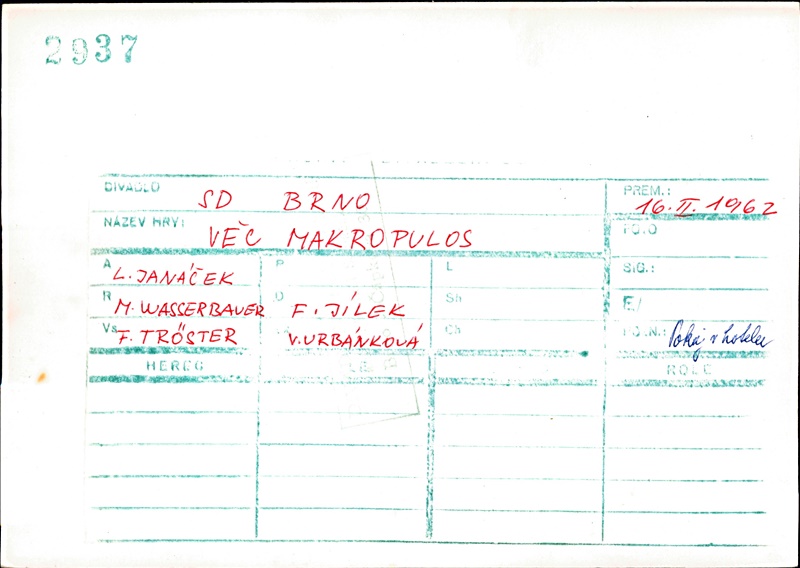 2937
DIVADLO SD BRNO PREM.: 16. II. 1962
NÁZEV HRY: VĚC MAKROPULOS
A L. JANÁČEK P L SIG.:
R M. WASSERBAUER D F. JÍLEK Sh
Vs F. TRÖSTER V. URBÁNKOVÁ Ch Pokoj v hotelu
HEREC ROLE